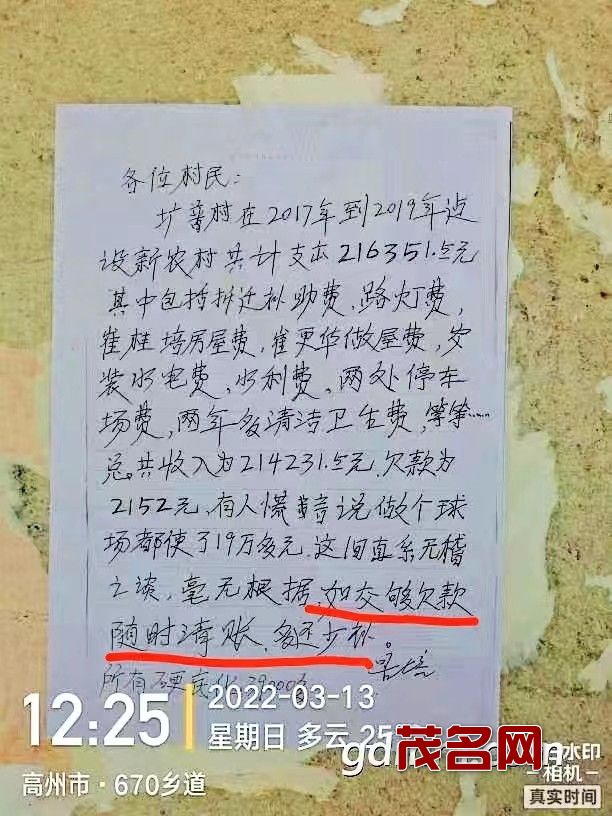 各位村民：
扩普村在2017年到2019年边
设新农村共计支出216351.5元
其中包括拆迁补助费，路灯费，
崔桂培房屋费，崔更华做屋费，安
装水电费，水利费，两处停车
场费，两年多清洁卫生费，等等……
总共收入为214231.5元.欠款为
2152元，有人慌言说做个球
场都使了19万多元.这间直系无稽
之谈，毫无根据，如交够欠款
随时清账，多还少补。
所有硬底化
12:25
2022-03-13
星期日 多云 25
高州市·670乡道
茂名网
水印
相机
真实时间